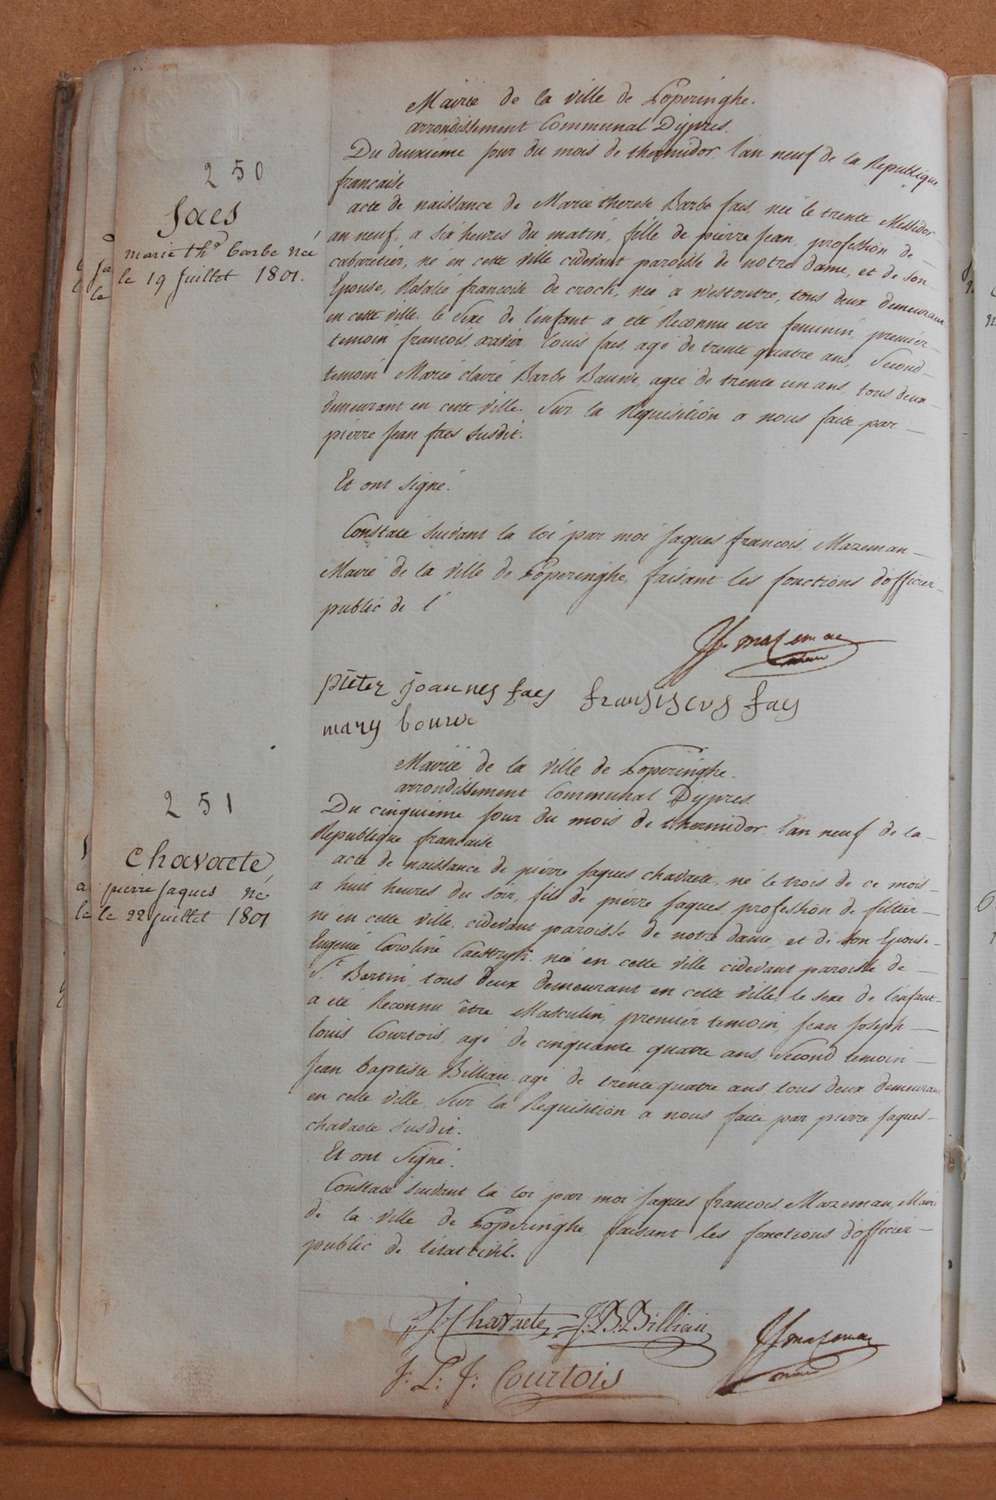 250
faes
marie th^e barbe née
le 19 Juillet 1801.
Mairie de la ville de Poperinghe.
arrondissement Communal Dÿpres.
Du deuxieme jour du mois de thermidor l'an neuf de la Republique
francaise
acte de naissance de Marie therese Barbe faes, née le trente Messidor
an neuf, a six heures du matin, fille de pierre Jean, profession de
cabaritier, né en cette ville cidevant paroisse de notre dame, et de son
Epouse, Rosalie francoise de croch, née a Westoutre, tous deux demeurant
en cette ville. le sexe de l'enfant a eté Reconnu etre feminin, premier
temoin francois Louis faes, agé de trente quatre ans, Second
temoin Marie claire Barbe agée de trente un ans, tous deux
demeurant en cette ville. Sur la Requisition a nous faite par
pierre Jean faes susdit.
Et ont signé.
Constaté suivant la loi par moi Jaques francois Mazeman
Maire de la ville de Poperinghe, faisant les fonctions d'officier
public de l'
JF mazeman
maire
pieter joannes faes fransiscus faes
mary
251
Chavaete
pierre Jaques né
le 22 juillet 1801
Mairie de la ville de Poperinghe.
arrondissement Communal Dÿpres.
Du cinquieme jour du mois de thermidor l'an neuf de la
Republique francaise
acte de naissance de pierre Jaques chavaete, né le trois de ce mois
a huit heures du soir, fils de pierre Jaques, profession de filtier
né en cette ville, cidevant paroisse de notre dame, et de son Epouse
Eugenie Caroline née en cette ville cidevant paroisse de
S^t Bertin, tous deux demeurant en cette ville, le sexe de l'enfant
a eté Reconnu être Masculin, premier temoin Jean Joseph
louis Courtois, agé de cinquante quatre ans, Second temoin
Jean baptiste Billiau agé de trente quatre ans, tous deux demeurant
en cette ville. Sur la Requisition a nous faite par pierre Jaques
chavaete susdit.
Et ont Signé.
Constaté suivant la loi par moi Jaques francois Mazeman, Maire
de la ville de Poperinghe faisant les fonctions d'officier
public de l'etat civil.
P. J. Chavaete J. B. Billiau JF mazeman
J: L: J: Courtois maire